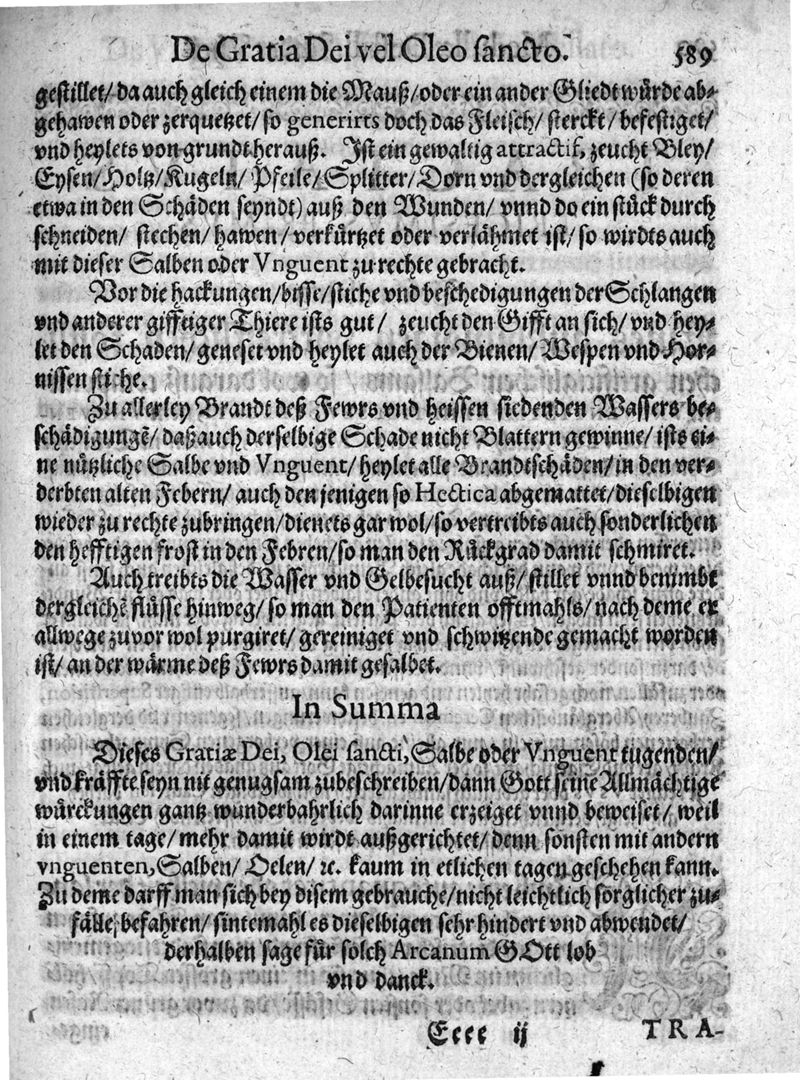 De Gratia Dei vel Oleo sancto. 589
gestillet/ da auch gleich einem die Mauß/ oder ein ander Gliedt würde ab-
gehawen oder zerquetzet/ so generirts doch das Fleisch/ sterckt/ befestiget/
vnd heylets von grundt herauß. Ist ein gewaltig attractif, zeucht Bley/
Eysen/ Holtz/ Kugeln/ Pfeile/ Splitter/ Dorn vnd dergleichen (so deren
etwa in den Schäden seyndt) auß den Wunden/ vnnd do ein stück durch
schneiden/ stechen/ hawen/ verkürtzet oder verlähmet ist/ so wirdts auch
mit dieser Salben oder Vnguent zu rechte gebracht.
Vor die hackungen/ bisse/ stiche vnd beschedigungen der Schlangen
vnd anderer gifftiger Thiere ists gut/ zeucht den Gifft an sich/ vnd hey-
let den Schaden/ geneset vnd heylet auch der Bienen/ Wespen vnd Hor-
nissen stiche.
Zu allerley Brandt deß Fewrs vnd heissen siedenden Wassers be-
schädigungē/ daß auch derselbige Schade nicht Blattern gewinne/ ists ei-
ne nützliche Salbe vnd Vnguent/ heylet alle Brandtschäden/ in den ver-
derbten alten Febern/ auch den jenigen so Hectica abgemattet/ dieselbigen
wieder zu rechte zubringen/ dienets gar wol/ so vertreibts auch sonderlichen
den hefftigen frost in den Febren/ so man den Rückgrad damit schmiret.
Auch treibts die Wasser vnd Gelbesucht auß/ stillet vnnd benimbt
dergleichē flüsse hinweg/ so man den Patienten offtmahls/ nach deme er
allwege zuvor wol purgiret/ gereiniget vnd schwitzende gemacht worden
ist/ an der wärme deß Fewrs damit gesalbet.
In Summa
Dieses Gratiæ Dei, Olei sancti, Salbe oder Vnguent tugenden/
vnd kräffte seyn nit genugsam zubeschreiben/ dann Gott seine Allmächtige
würckungen gantz wunderbahrlich darinne erzeiget vnnd beweiset/ weil
in einem tage/ mehr damit wirdt außgerichtet/ denn sonsten mit andern
vnguenten, Salben/ Oelen/ ꝛc. kaum in etlichen tagen geschehen kann.
Zu deme darff man sich bey disem gebrauche/ nicht leichtlich sorglicher zu-
fälle, befahren/ sintemahl es dieselbigen sehr hindert vnd abwendet/
derhalben sage für solch Arcanum GOtt lob
vnd danck.
Eeee ij TRA-